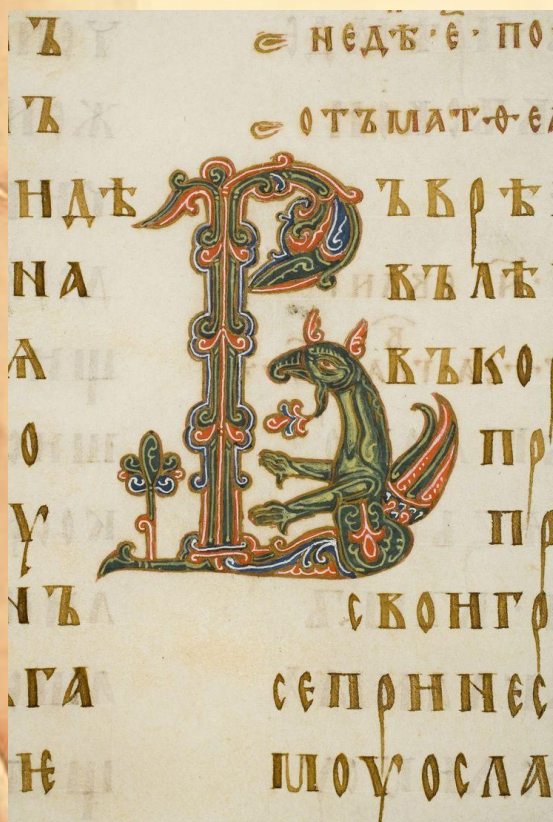 Ъ
Ъ
НДѢ
НА
Ѧ
О
У
Ъ
ГА
НЕДѢ·Е҃·ПО
ОТЪМАТѲЕ
ВЪВРѢ
ВЪЛѢ
ВЪКОР
ПР
ПР
СВОИГР
СЕПРИНЕС
МОУОСЛА